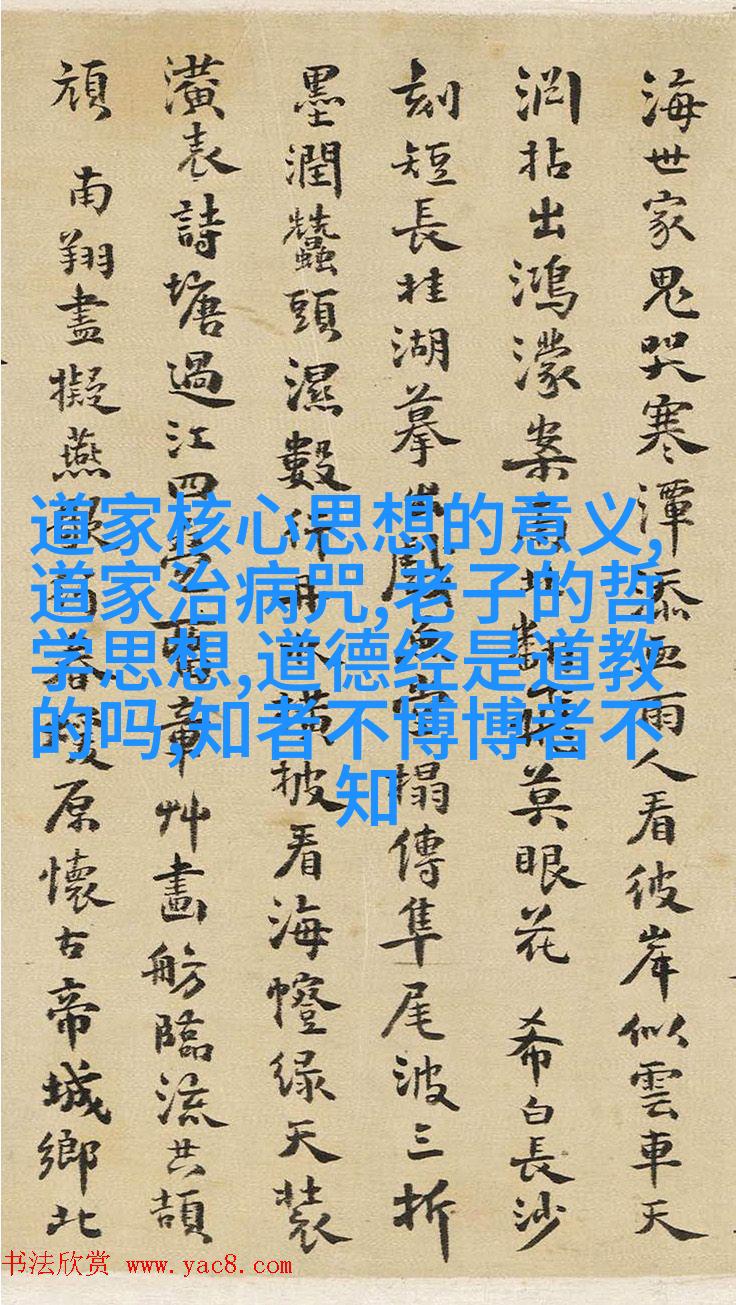 海世家鬼哭寒潭雨人看彼岸似雲車天
拈出鴻濛案莫眼花 希白長沙
刻短長桂湖摹榻傳隼尾波三折
墨潤蠶頭濕數橫披看海幢绿天裝
潢表詩塘過江四章艸畫舫臨流共頡
頏 南翔盡擬燕原懷古帝城鄉北
道家核心思想的意义,
道家治病咒,老子的哲
学思想,道德经是道教
的吗,知者不博博者不
知
书法欣赏 www.yac8.com